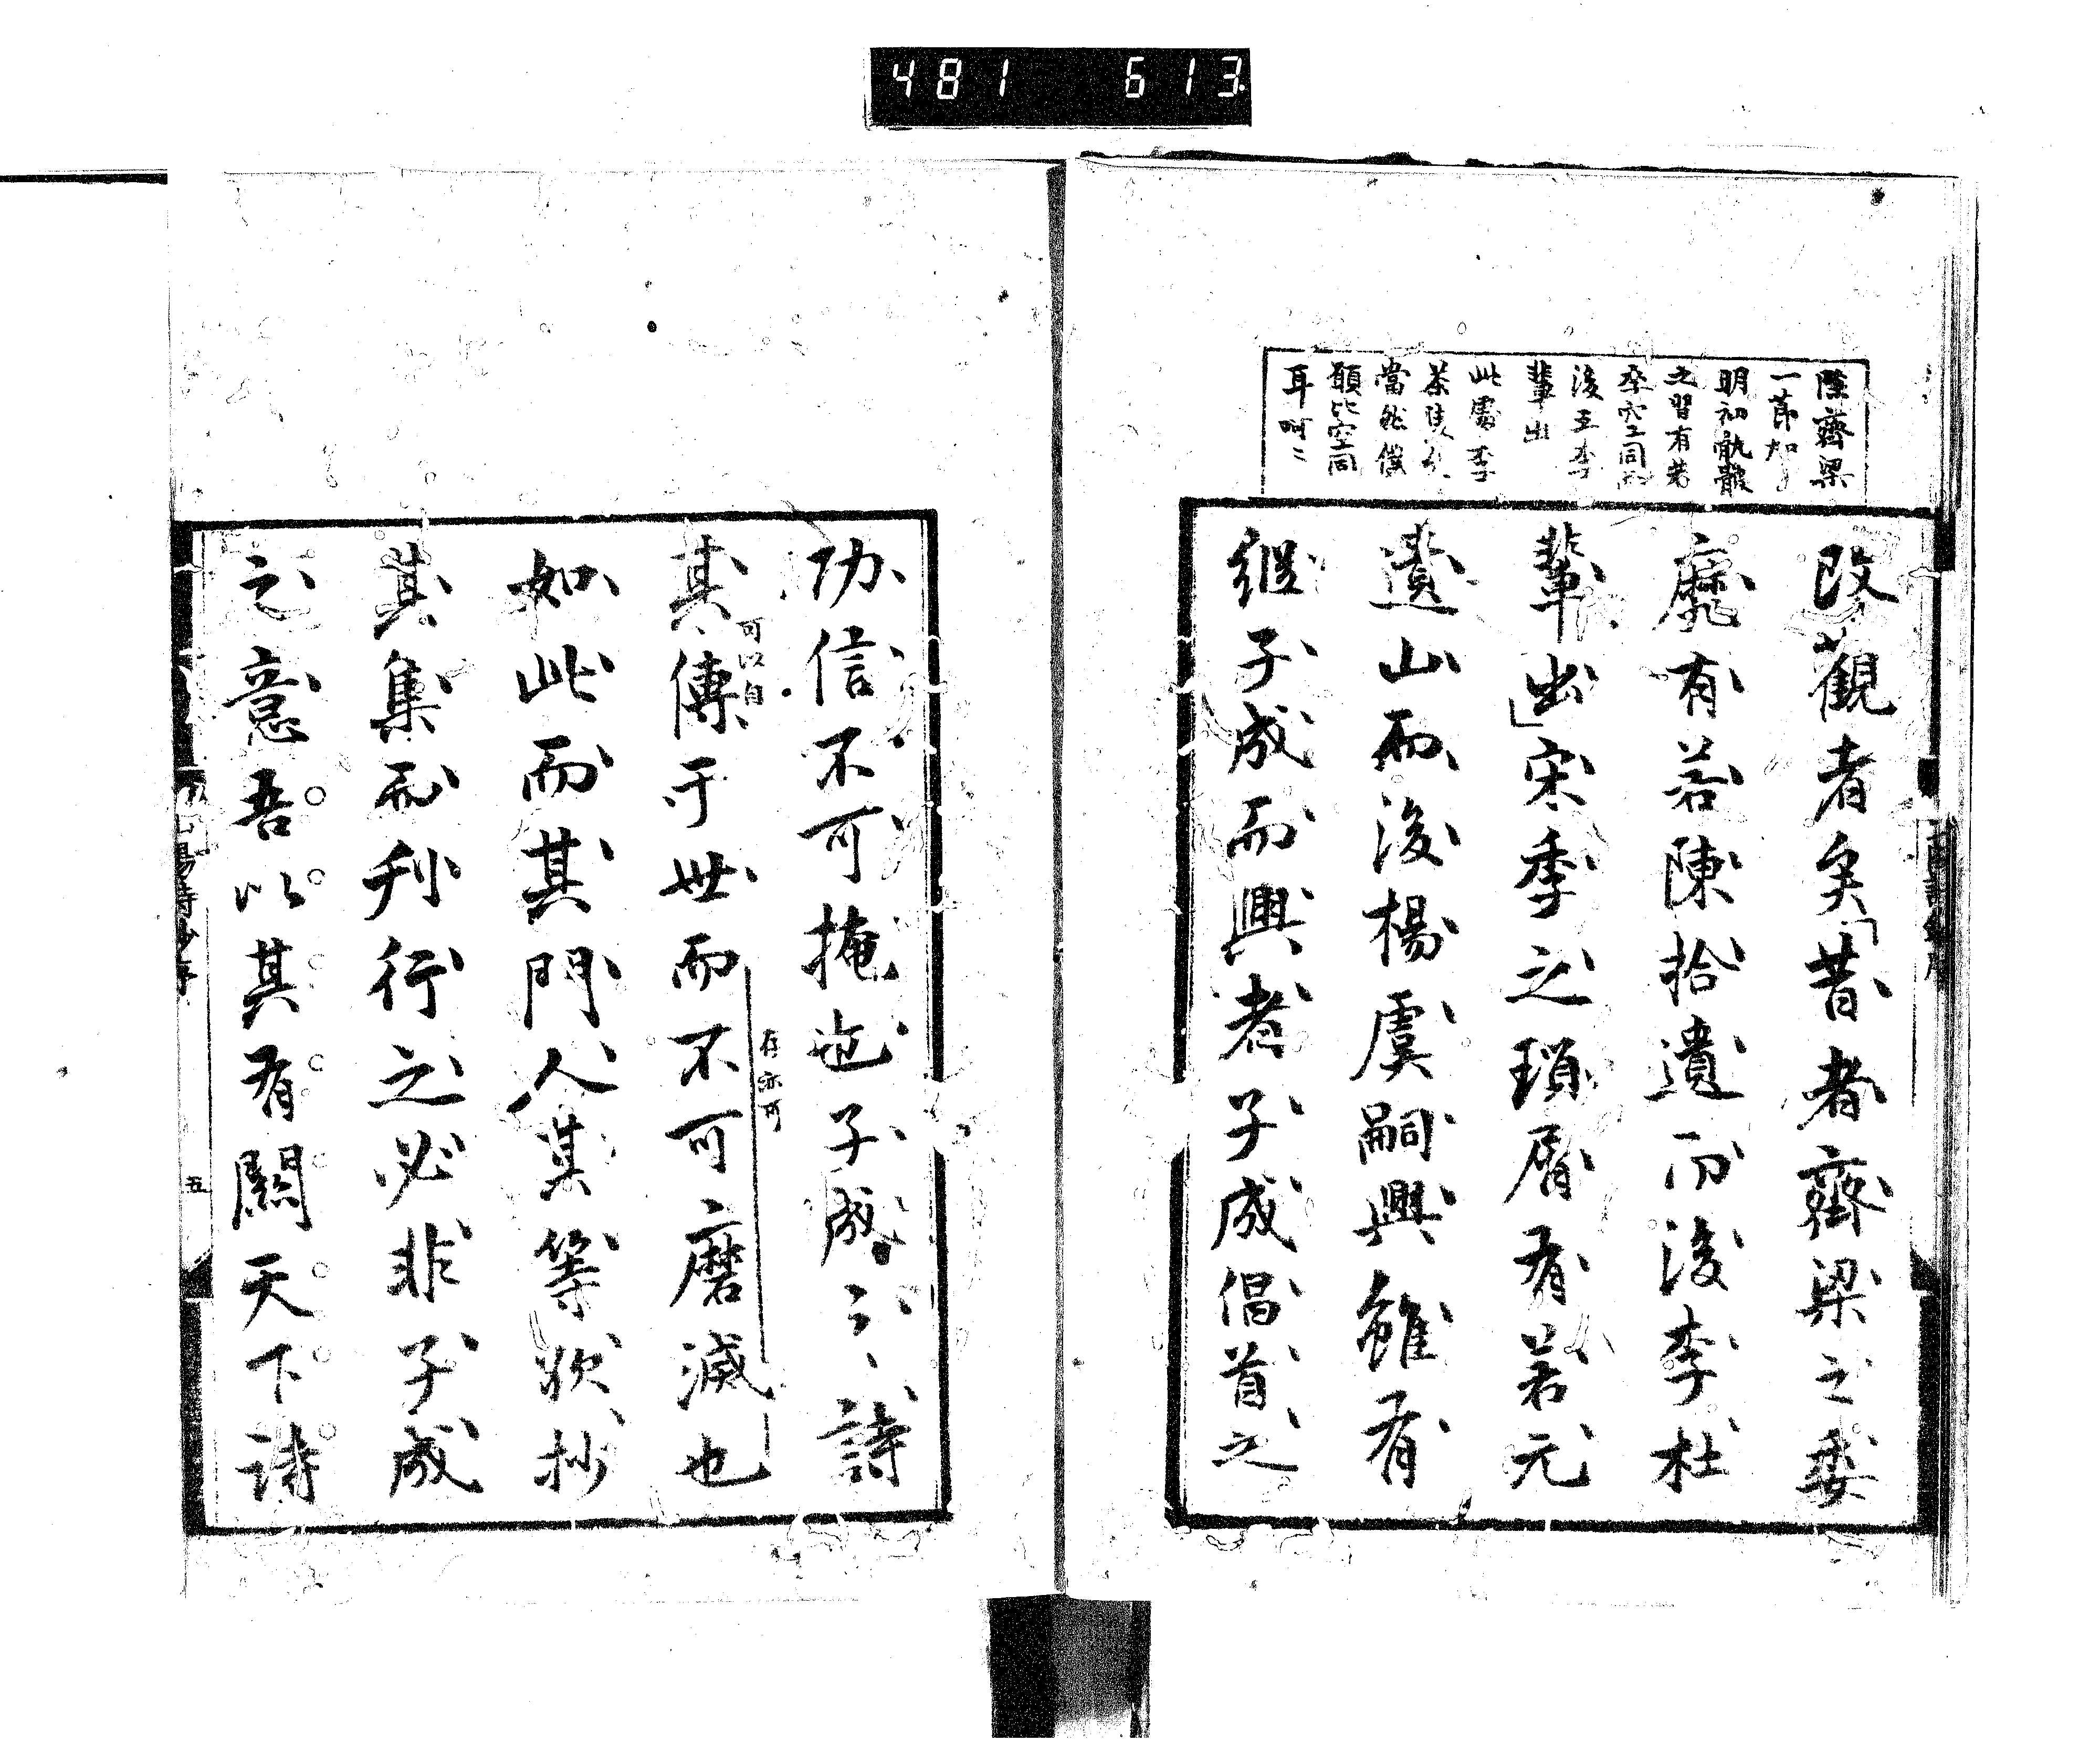 481 613
陸齊梁
一節如
明初骯髒
之習有若
空同
後王李
輩出
此處李
茶陵
當然僕
願比空同
耳呵〻
改觀者矣昔者齊梁之委
靡有若陳拾遺而後李杜
輩出宋季之瑣屑有若元
遺山而後楊虞嗣興雖有
繼子成而興者子成倡首之
功信不可掩也子成之詩
其傳于世而不可磨滅也
可以自
存亦可
如此而其門人某等欲抄
其集而刊行之必非子成
之意吾以其有關天下詩
五